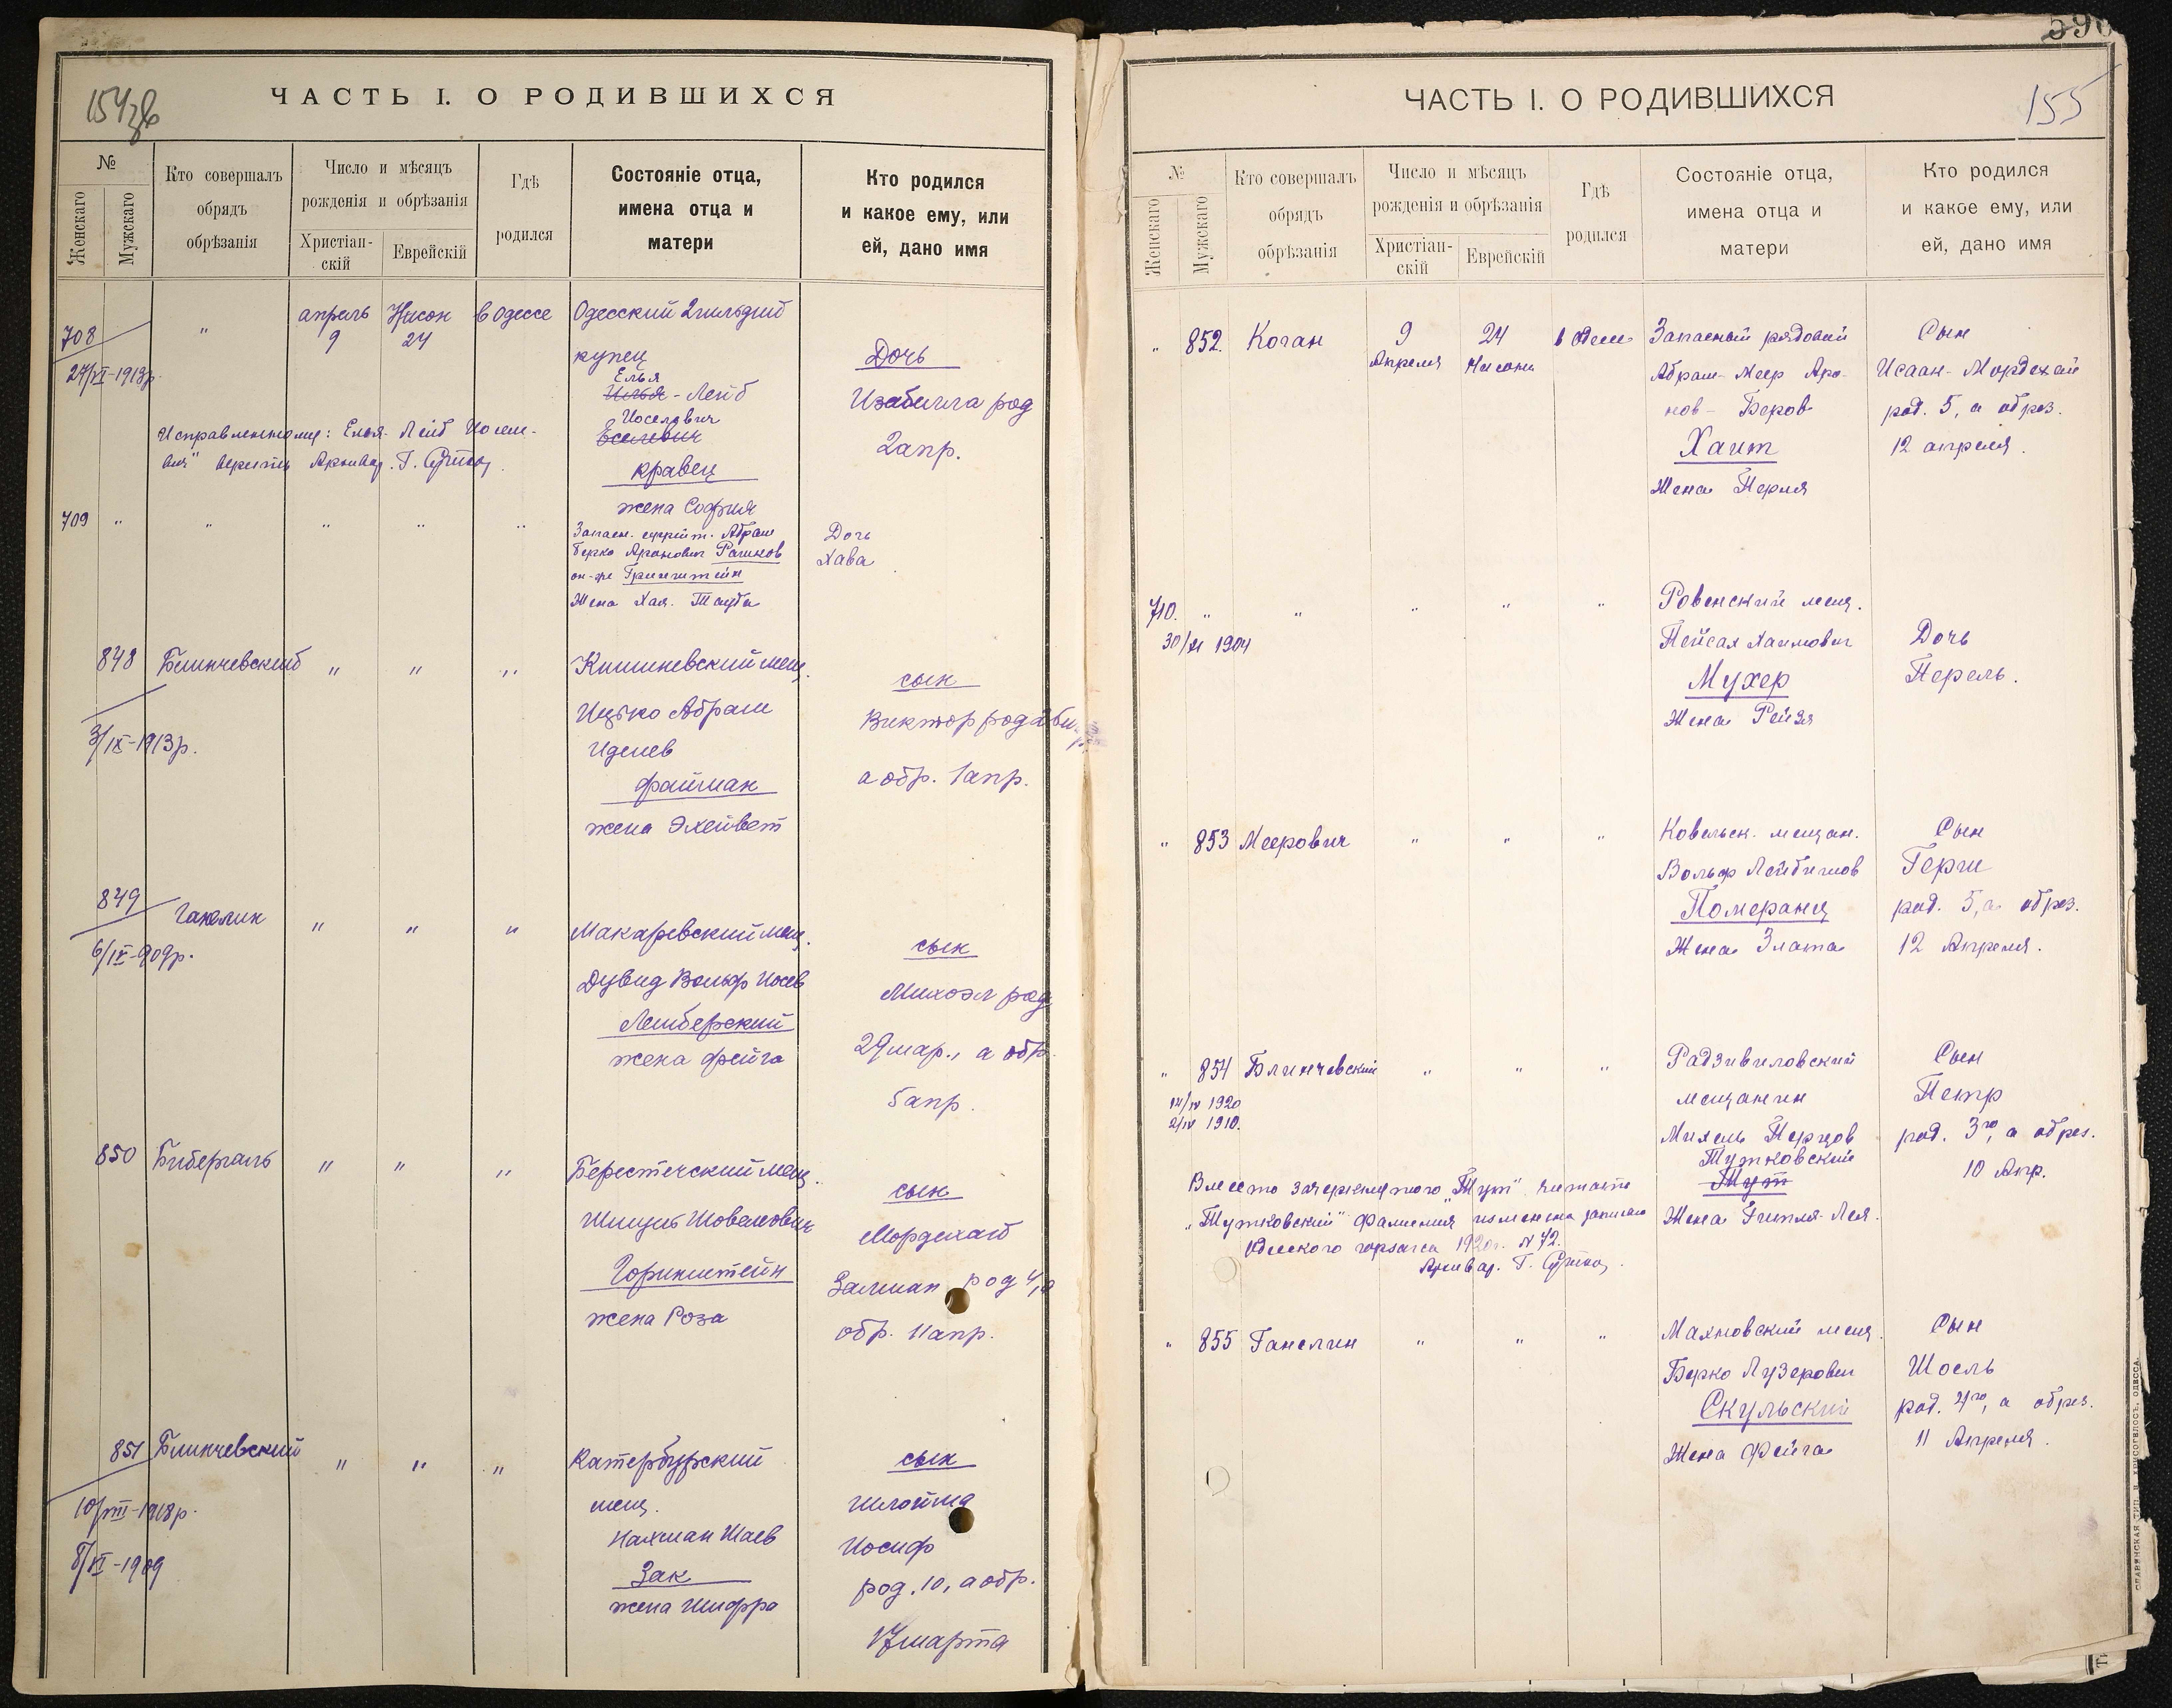 154 зв
ЧАСТЬ I. О РОДИВШИХСЯ
№
Женскаго
Мужскаго
Кто совершалъ
обрядъ
обрѣзанія
Число и мѣсяцъ
рожденія и обрѣзанія
Христіан-
скій
Еврейскій
Гдѣ
родился
Состояніе отца,
имена отца и
матери
Кто родился
и какое ему, или
ей, дано имя
708 " апрель 9 Нисон 24 в Одессе Одесский 2 гильдий
27/VI-1913р.
купец
Елья
Илья - Лейб
Иоселевич
Еселевич
Кравец
жена София
Дочь
Изабелла род
2 апр.
Исправленному: Елья-Лейб Иоселе-
вич" верить Архивар. Г.
709 " " " " "
Запасн. ефрейт. Абрам
Берко Аронович Рашков
он-же Гринштейн
Жена Хая-Тауба
Дочь
Хава
848 Блинчевский " " "
3/IX-1913р.
Кишиневский мещ.
Ицько Абрам
Иделев
Файман
жена Элейвет
сын
Виктор род 25
а обр. 1 апр.
849 Ганелин " " "
6/IX-909р.
Макаревский мещ.
Дувид Вольф Иосев
Лемберский
жена Фейга
сын
Михоэл род
29 мар., а обр.
5 апр.
850 Бибергаль " " "
Берестечский мещ.
Шмуль Шовелович
Горинштейн
жена Роза
сын
Мордехай
Залман род 4, а
обр. 11 апр.
851 Блинчевский " " "
10/VIII-1918р.
8/XI-1909
Катербурский
мещ.
Нахман Шаев
Зак
жена Шифра
сын
Шлойма
Иосиф
род. 10, а обр.
17 марта
590
155
ЧАСТЬ I. О РОДИВШИХСЯ
№
Женскаго
Мужскаго
Кто совершалъ
обрядъ
обрѣзанія
Число и мѣсяцъ
рожденія и обрѣзанія
Христіан-
скій
Еврейскій
Гдѣ
родился
Состояніе отца,
имена отца и
матери
Кто родился
и какое ему, или
ей, дано имя
" 852. Коган 9 Апреля 24 Нисона в Одессе
Запасный рядовой
Абрам-Меер Аро-
нов-Беров
Хаит
Жена Перля
Сын
Исаак-Мордехай
род. 5, а обрез.
12 апреля.
710. " " " " "
30/XI 1904
Ровенский мещ.
Пейсах Хаимович
Мухер
Жена Рейзя
Дочь
Перель.
" 853 Меерович " " "
Ковельск. мещан.
Вольф Лейбишов
Померанц
Жена Злата
Сын
Герш
род. 5, а обрез.
12 Апреля.
" 854 Блинчевский " " "
14/IV 1920
2/IV 1910.
Радзивиловский
мещанин
Михель Перцов
Тутковский
Тут
Жена Гитля-Лея.
Сын
Петр
род. 3го, а обрез.
10 Апр.
Вместо зачеркнутого „Тут" читать
„Тутковский" фамилия изменена записью
Одесского горзагса 1920г. N 72.
Архивар. Г.
" 855 Ганелин " " "
Махновский мещ.
Берко Лузерович
Скульский
Жена Фейга
Сын
Шоель
род. 4го, а обрез.
11 Апреля.
СЛАВЯНСКАЯ ТИП. Н. ХРИСОГЕЛОСЪ, ОДЕССА.